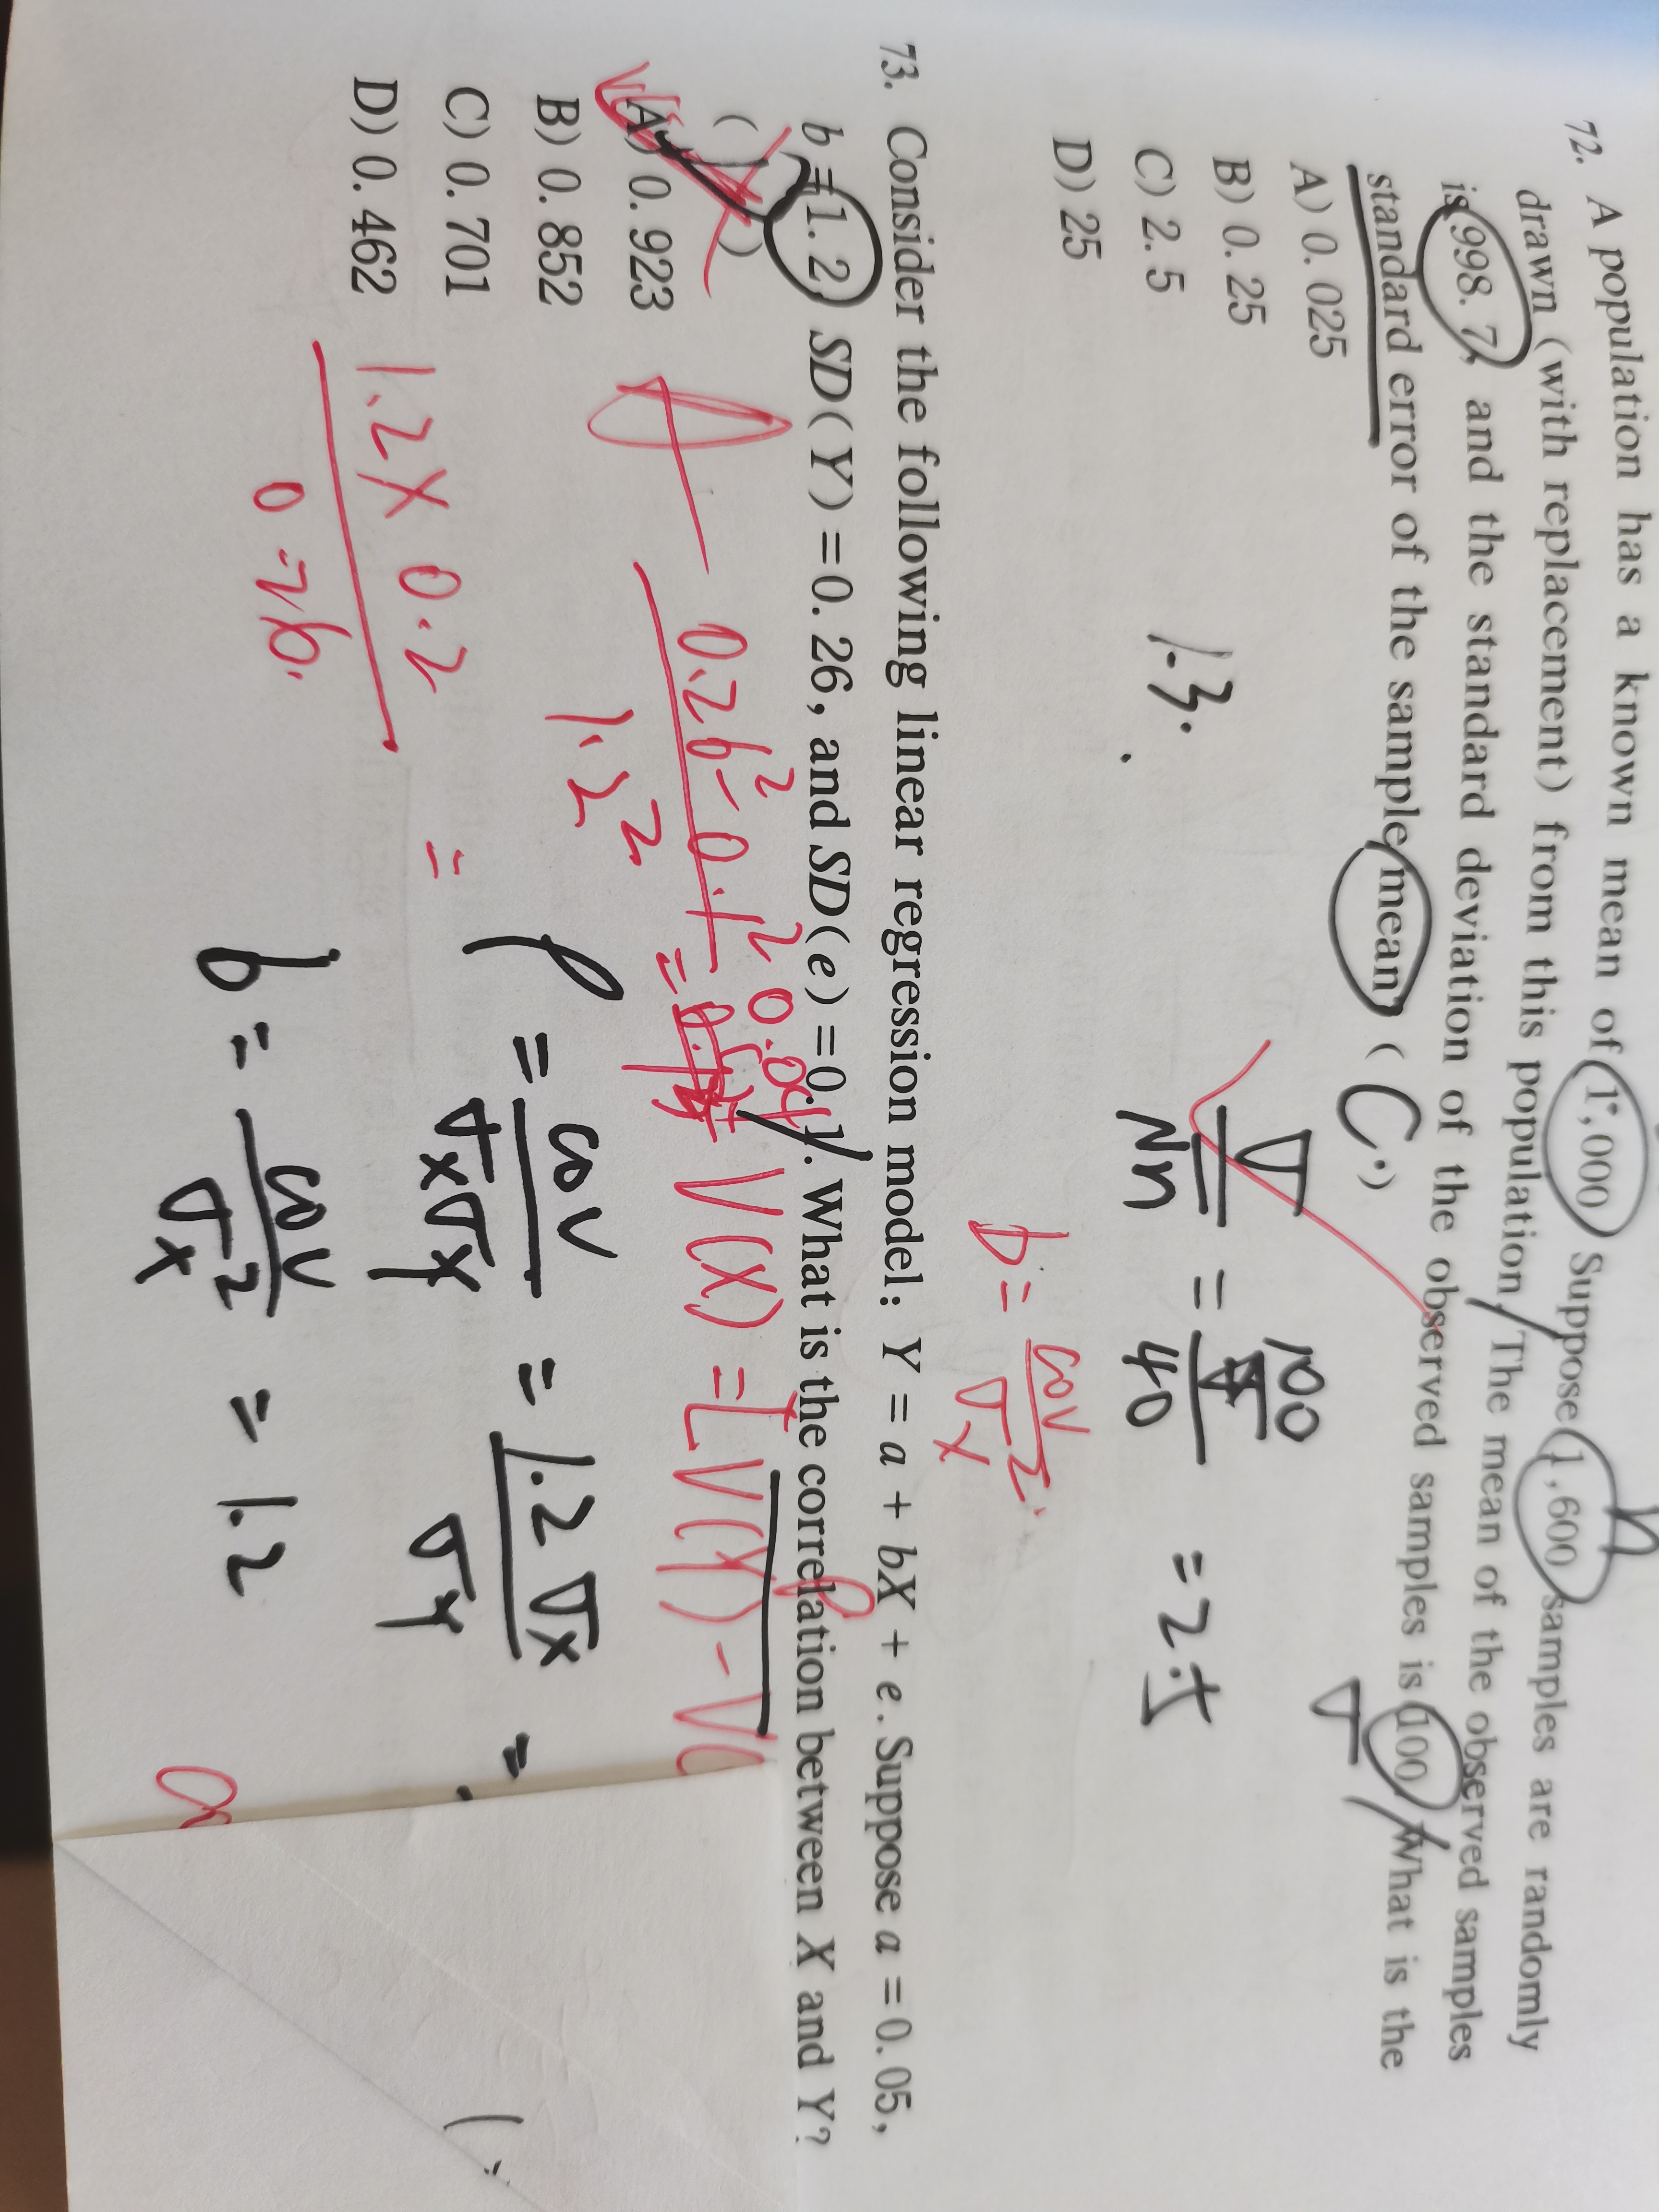 72. A population has a known mean of 1,000. Suppose 1,600 samples are randomly
drawn (with replacement) from this population. The mean of the observed samples
is 998. 7, and the standard deviation of the observed samples is 100. What is the
standard error of the sample mean? ( C )
A) 0. 025
B) 0. 25
C) 2. 5
D) 25
n
σ
1.3.
σ/√n = 100/40 = 2.5
b = cov/σx²
73. Consider the following linear regression model: Y = a + bX + e. Suppose a = 0. 05,
b = 1. 2, SD(Y) = 0. 26, and SD(e) = 0. 1. What is the correlation between X and Y?
( )
A) 0. 923
B) 0. 852
C) 0. 701
D) 0. 462
0.26² - 0.1²
1.2²
= 0.04
V(X) = [V(Y) - V(
1.2 × 0.2
0.26
=
ρ = cov/σxσy = 1.2σx/σy =
b = cov/σx² = 1.2